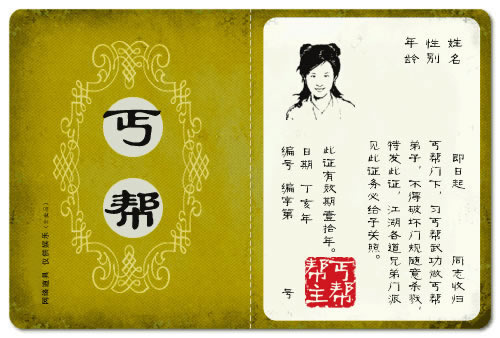 丐
帮
网络道具 仅供娱乐
姓名
性别
年龄
即日起 同志收归
丐帮门下，习丐帮武功做丐帮
弟子，不得破坏门规随意杀戮，
特发此证，江湖各道兄弟门派
见此证务必给予关照。
此证有效期壹拾年。
日期 丁亥年
编号 编字第 号
丐帮
帮主